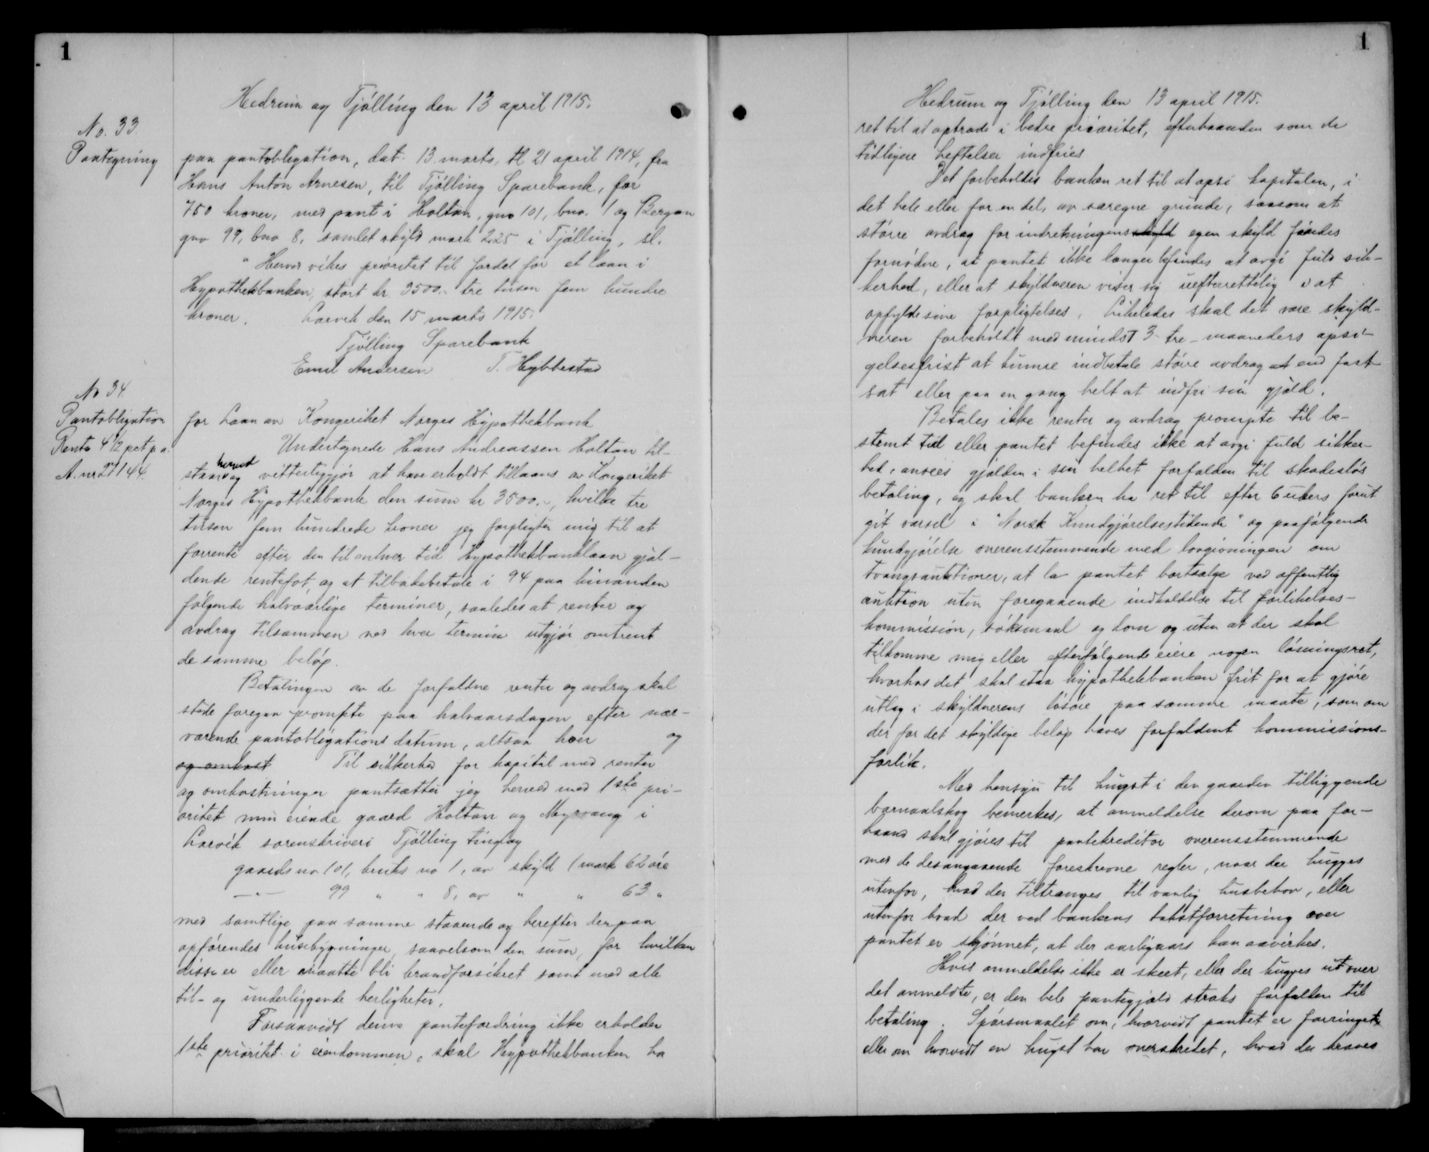 1
Hedrum og Tjølling den 13 april 1915.
No. 33
Pantegning
paa pantobligation, dat. 13 marts, tl 21 april 1914, fra
Hans Anton Arnesen, til Tjølling Sparebank, for
750 kroner, med pant i Holtan, gno 101, bno. 1 og Bergan
gno 99, bno 8, samlet skyld mark 2.25 i Tjølling, sl.
" Herved vikes prioritet til fordel for et laan i
Hypothekbanken, stort kr. 3500.- tre tusen fem hundre
kroner. Larvik den 15 marts 1915.
Tjølling Sparebank
Emil Andersen T. Hybbestad
No 34
Pantobligation
Rente 4 1/2 pct p.a.
A. nr 27144
for Laan av Kongeriket Norges Hypothekbank
Undertegnede Hans Andreassen Holtan til-
staar herved og vitterliggjør at have erholdt tillaans av Kongeriket
Norges Hypothekbank den sum kr 3500.-, hvilke tre
tusen fem hundrede kroner jeg forpligter mig til at
forrente efter den til enhver tid Hypothekbanklaan gjæl-
dende rentefot, og at tilbakebetale i 94 paa hinanden
følgende halvaarlige terminer, saaledes at renter og
avdrag tilsammen ved hver termin utgjør omtrent
de samme beløp.
Betalingen av de forfaldne renter og avdrag skal
stede foregaa prompte paa halvaarsdagen efter nær-
værende pantobligations datum, altsaa hver og
og omkost Til sikkerhed for kapital med renter
og omkostninger pantsætter jeg herved med 1ste pri-
oritet min eiende gaard Holtan og Myrvang i
Larvik sorenskriveri Tjølling tinglag
gaards no 101, bruks no 1, av skyld 1 mark 62 øre
—"— 99 " " 8, av " " 63 "
med samtlige paa samme staaende og herefter derpaa
opførendes husbygninger, saavelsom den sum, for hvilken
disse er eller maatte bli brandforsikret samt med alle
til- og underliggende herligheter.
Forsaavidt denne pantefordring ikke erholder
1ste prioritet i eiendommen, skal Hypothekbanken ha
1
Hedrum og Tjølling den 13 april 1915.
ret til at optræde i bedre prioritet, efterhaanden som de
tidligere heftelser indfries
Det forbeholdes banken ret til at opsi kapitalen, i
det hele eller for en del, av særegne grunde, saasom at
større avdrag for indretningens skyld egen skyld findes
fornødne, at pantet ikke længer befindes at avgi fuld sik-
kerhed, eller at skyldneren viser sig uefterrettelig i at
opfylde sine forpligtelser. Likeledes skal det være skyld-
neren forbeholdt med mindst 3- tre- maaneders opsi-
gelsesfrist at kunne indbetale større avdrag at end fast-
sat eller paa en gang helt at indfri sin gjæld.
Betales ikke renter og avdrag prompte til be-
stemt tid eller pantet befindes ikke at avgi fuld sikker-
het, ansees gjælden i sin helhet forfalden til skadesløs
betaling, og skal banken ha ret til efter 6 ukers forut
git varsel i "Norsk Kundgjørelsestidende" og paafølgende
kundgjørelse overensstemmende med lovgivningen om
tvangsauktioner, at la pantet bortsælge ved offentlig
auktion uten foregaaende indkaldelse til forlikelses-
kommission, søksmaal og dom og uten at der skal
tilkomme mig eller efterfølgende eiere nogen løsningsret,
hvorhos det skal staa hypothekbanken frit for at gjøre
utlæg i skyldnerens løsøre paa samme maate, som om
der for det skyldige beløp haves forfaldent kommissions-
forlik.
Med hensyn til hugst i den gaarden tilliggende
barnaalskog bemerkes, at anmeldelse derom paa for-
haand skal gjøres til pantekreditor overensstemmende
med de desangaaende foreskrevne regler, naar der hugges
utenfor, hvad der tiltrænges til vanlig husbehov, eller
utenfor hvad der ved bankens takstforretning over
pantet er skjønnet, at der aarligaars kan avvirkes.
Hvis anmeldelse ikke er skeet, eller der hugges utover
det anmeldte, er den hele pantegjæld straks forfalden til
betaling. Spørsmaalet om, hvorvidt pantet er forringet
eller om hvorvidt en hugst har overskridet, hvad der kræves